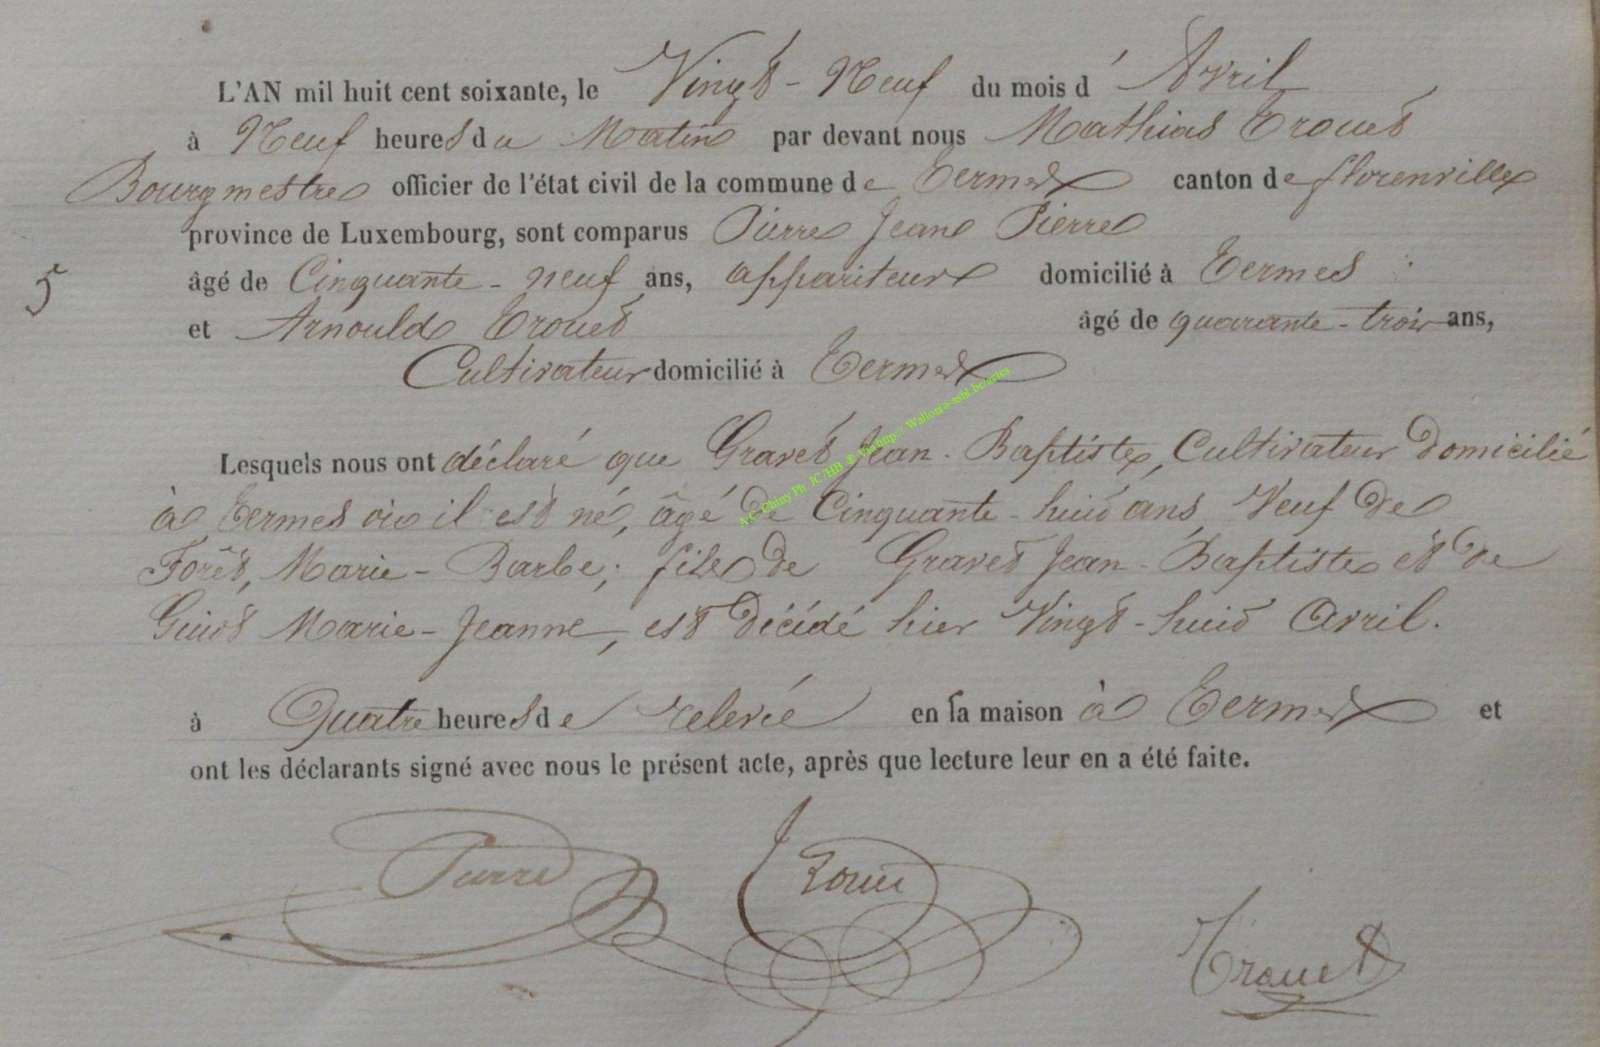 L'AN mil huit cent soixante, le Vingt-Neuf du mois d'Avril
à Neuf heures du Matin par devant nous Mathias Trouet
Bourgmestre officier de l'état civil de la commune de Termes canton de florenville
province de Luxembourg, sont comparus Pierre Jean Pierre
5 âgé de Cinquante-neuf ans, appariteur domicilié à Termes
et Arnould Trouet âgé de quarante-trois ans,
Cultivateur domicilié à Termes
Lesquels nous ont déclaré que Gravet Jean-Baptiste, Cultivateur domicilié
à Termes où il est né, âgé de Cinquante-huit ans, Veuf de
Forêt, Marie-Barbe; fils de Gravet Jean-Baptiste et de
Guiot Marie-Jeanne, est décédé hier Vingt-huit avril.
à Quatre heures de relevée en sa maison à Termes et
ont les déclarants signé avec nous le présent acte, après que lecture leur en a été faite.
Pierre Trouet
Trouet